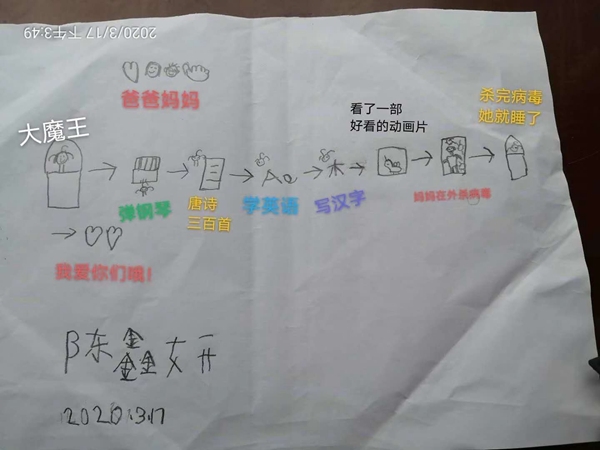 2020/3/17 下午3:49
爸爸妈妈
看了一部
好看的动画片
杀完病毒
她就睡了
大魔王
Aa
木
弹钢琴
唐诗
三百首
学英语
写汉字
妈妈在外杀病毒
我爱你们哦！
陈鑫妍
2020.3.17